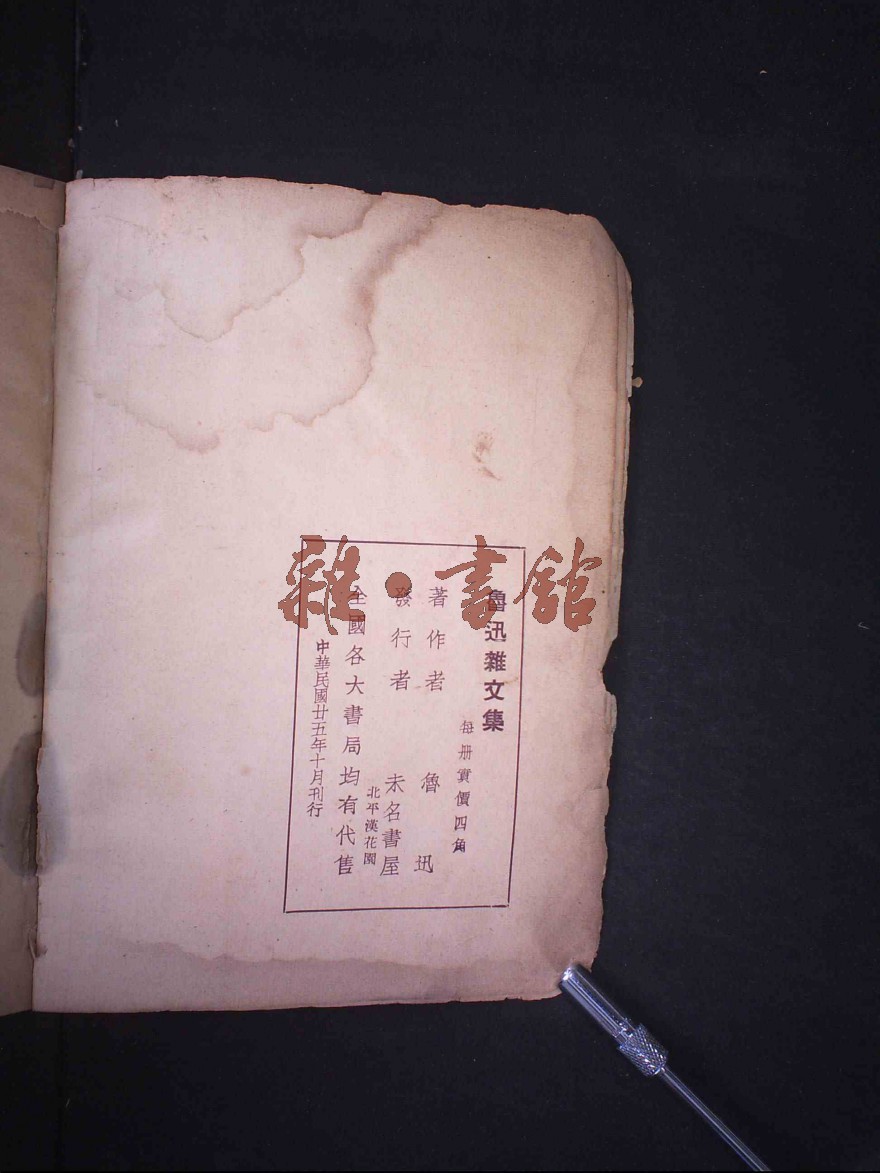 魯迅雜文集
每册實價四角
著作者 魯迅
發行者 未名書屋
北平漢花園
全國各大書局均有代售
中華民國廿五年十月刊行
雜·書館